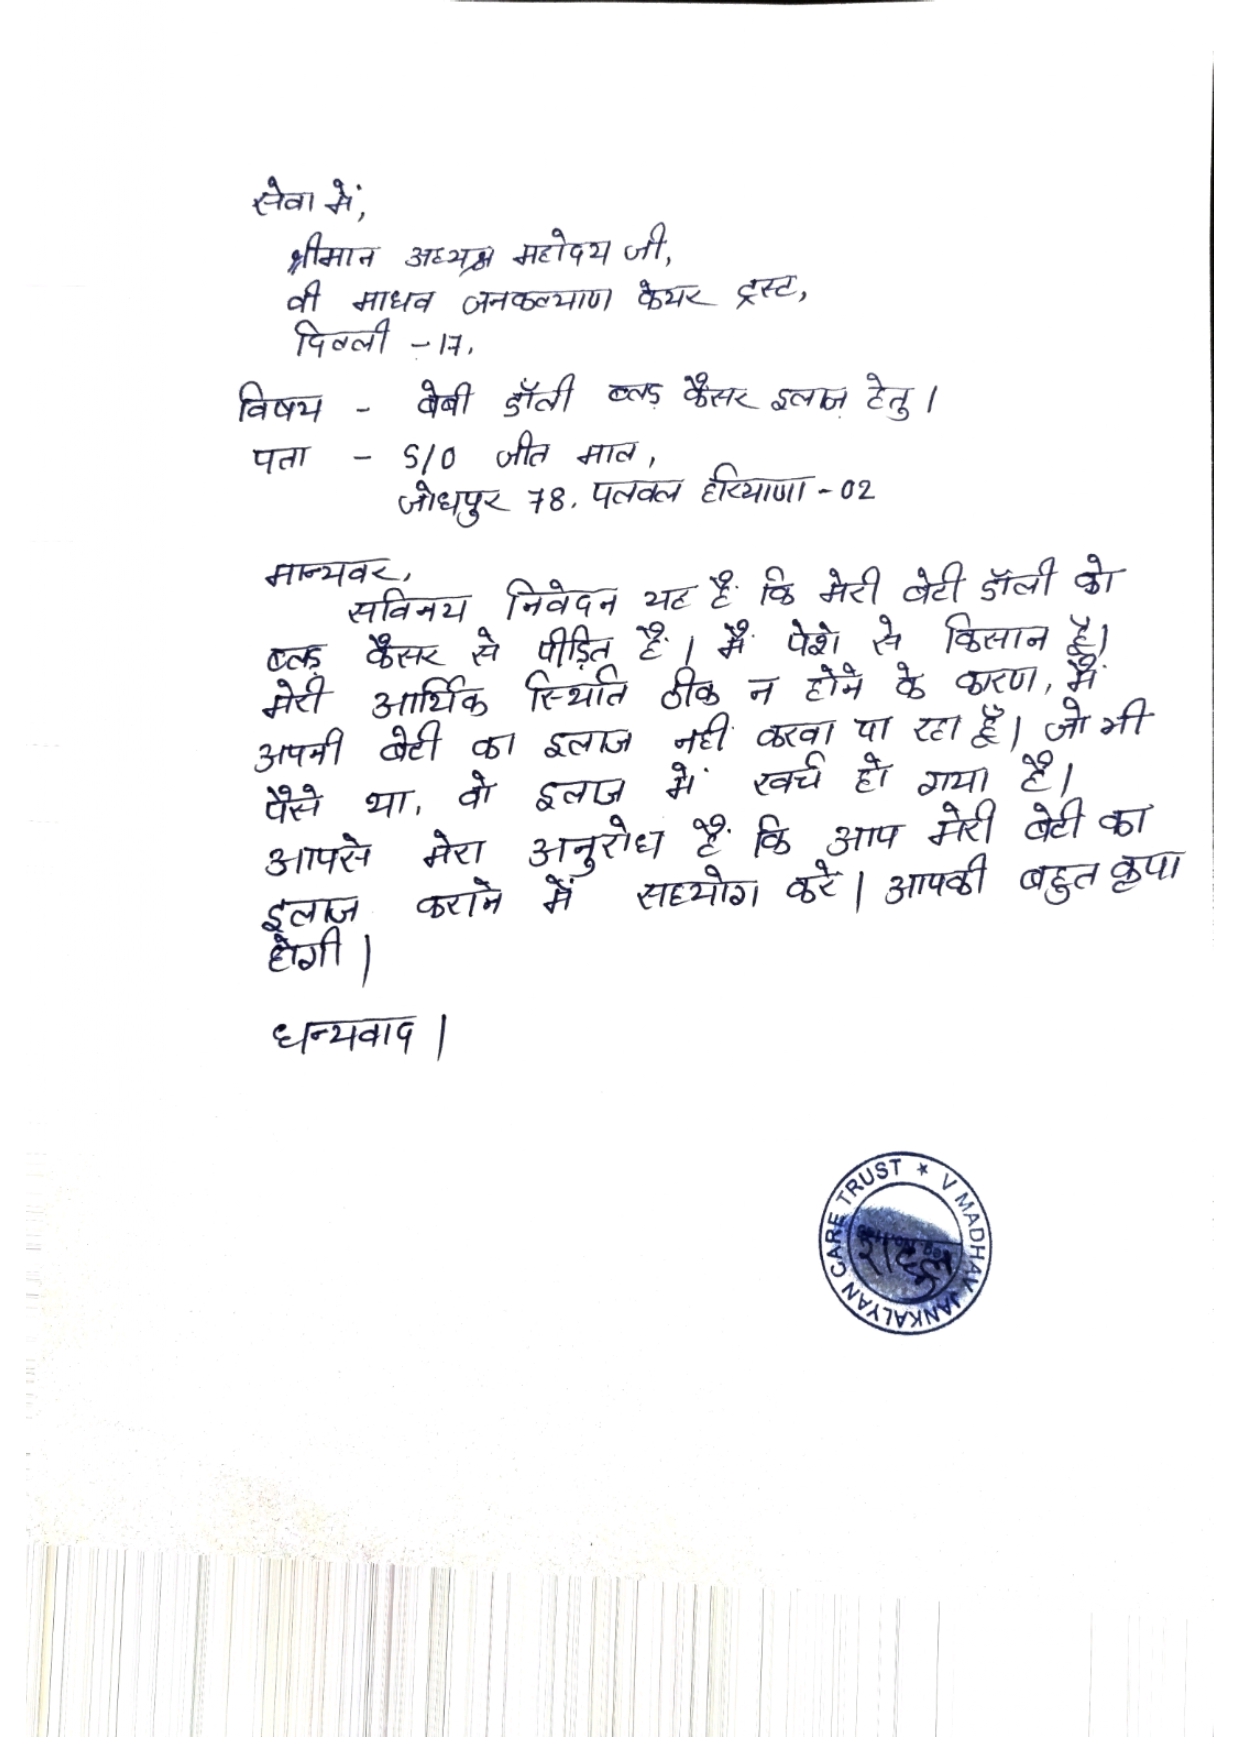 सेवा में,
श्रीमान अध्यक्ष महोदय जी,
वी माधव जनकल्याण केयर ट्रस्ट,
दिल्ली - 17.
विषय - बेबी डॉली ब्लड कैंसर इलाज हेतु।
पता - S/O जीत माल,
जोधपुर 78. पलवल हरियाणा - 02
मान्यवर,
सविनय निवेदन यह है कि मेरी बेटी डॉली को
ब्लड़ कैंसर से पीड़ित है। मैं पेशे से किसान हूँ।
मेरी आर्थिक स्थिति ठीक न होने के कारण, मैं
अपनी बेटी का इलाज नहीं करवा पा रहा हूँ। जो भी
पैसे था, वो इलाज में खर्च हो गया है।
आपसे मेरा अनुरोध है कि आप मेरी बेटी का
इलाज कराने में सहयोग करें। आपकी बहुत कृपा
होगी।
धन्यवाद।
V MADHAV JANKALYAN CARE TRUST ★
राहुल